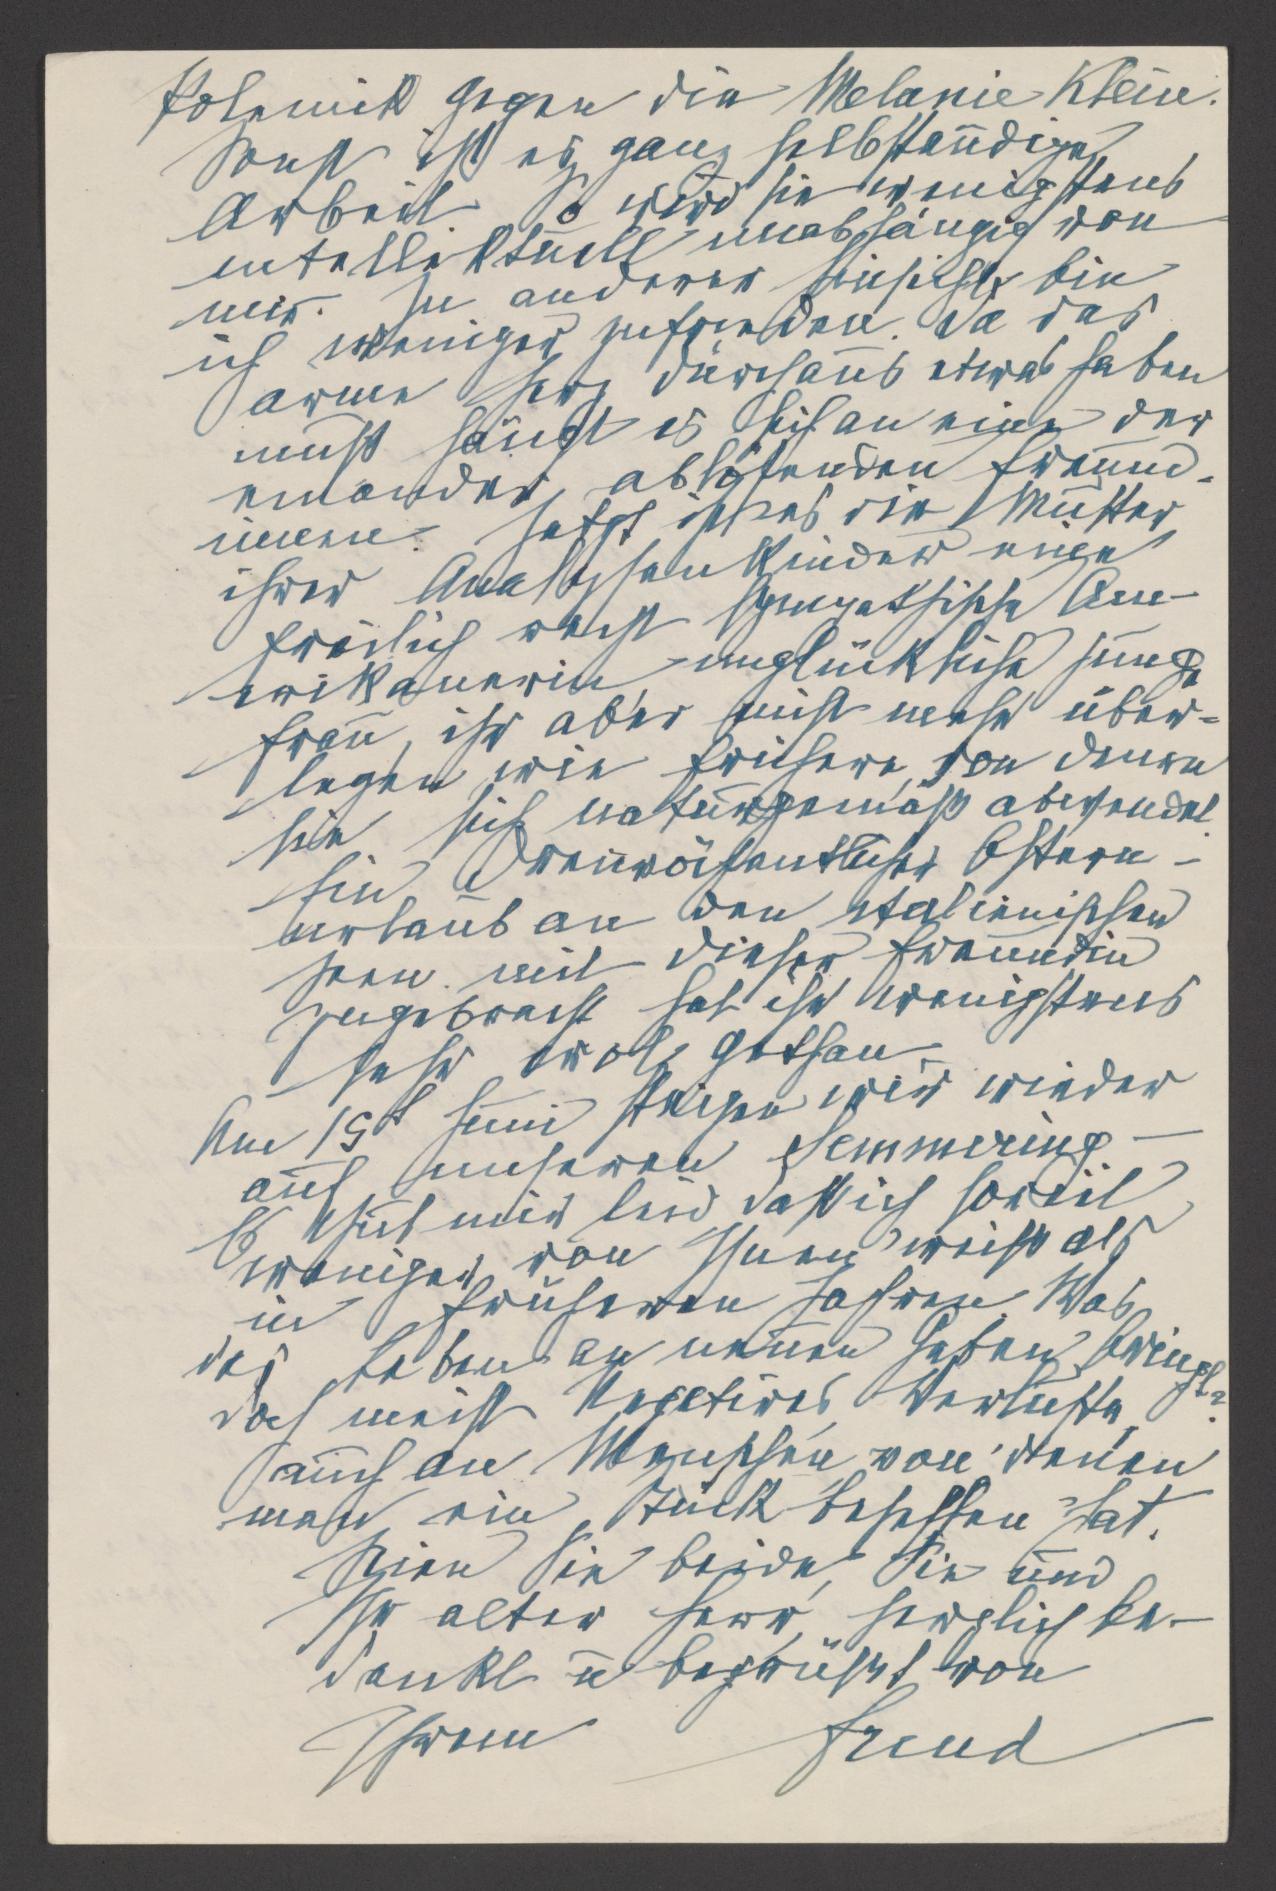 Polemik gegen die Melanie Klein.
Sonst ist es ganz selbständige
Arbeit. So wird sie wenigstens
intellektuell unabhängig von
mir. In anderer Hinsicht bin
ich weniger zufrieden. Da das
arme Herz durchaus etwas haben
muß hängt es sich an eine der
einander ablösenden Freund-
innen. Jetzt ist es die Mutter
ihrer Analysenkinder eine
freilich recht sympathische Am-
erikanerin unglückliche junge
Frau, ihr aber nicht mehr über-
legen wie frühere, von denen
sie sich naturgemäß abwendet.
Ein dreiwöchentlicher Ostern-
urlaub an den italienischen
Seen mit dieser Freundin
zugebracht hat ihr wenigstens
sehr wol gethan.
Am 15t Juni steigen wir wieder
auf unseren Semmering —
Es thut mir leid daß ich soviel
weniger von Ihnen weiß als
in früheren Jahren. Was
das Leben an neuen Gaben bringt?
doch meist Negatives, Verluste
auch an Menschen von denen
man ein Stück besessen hat.
Seien Sie beide, Sie und
Ihr alter Herr, herzlich be-
dankt u begrüßt von
Ihrem Freud